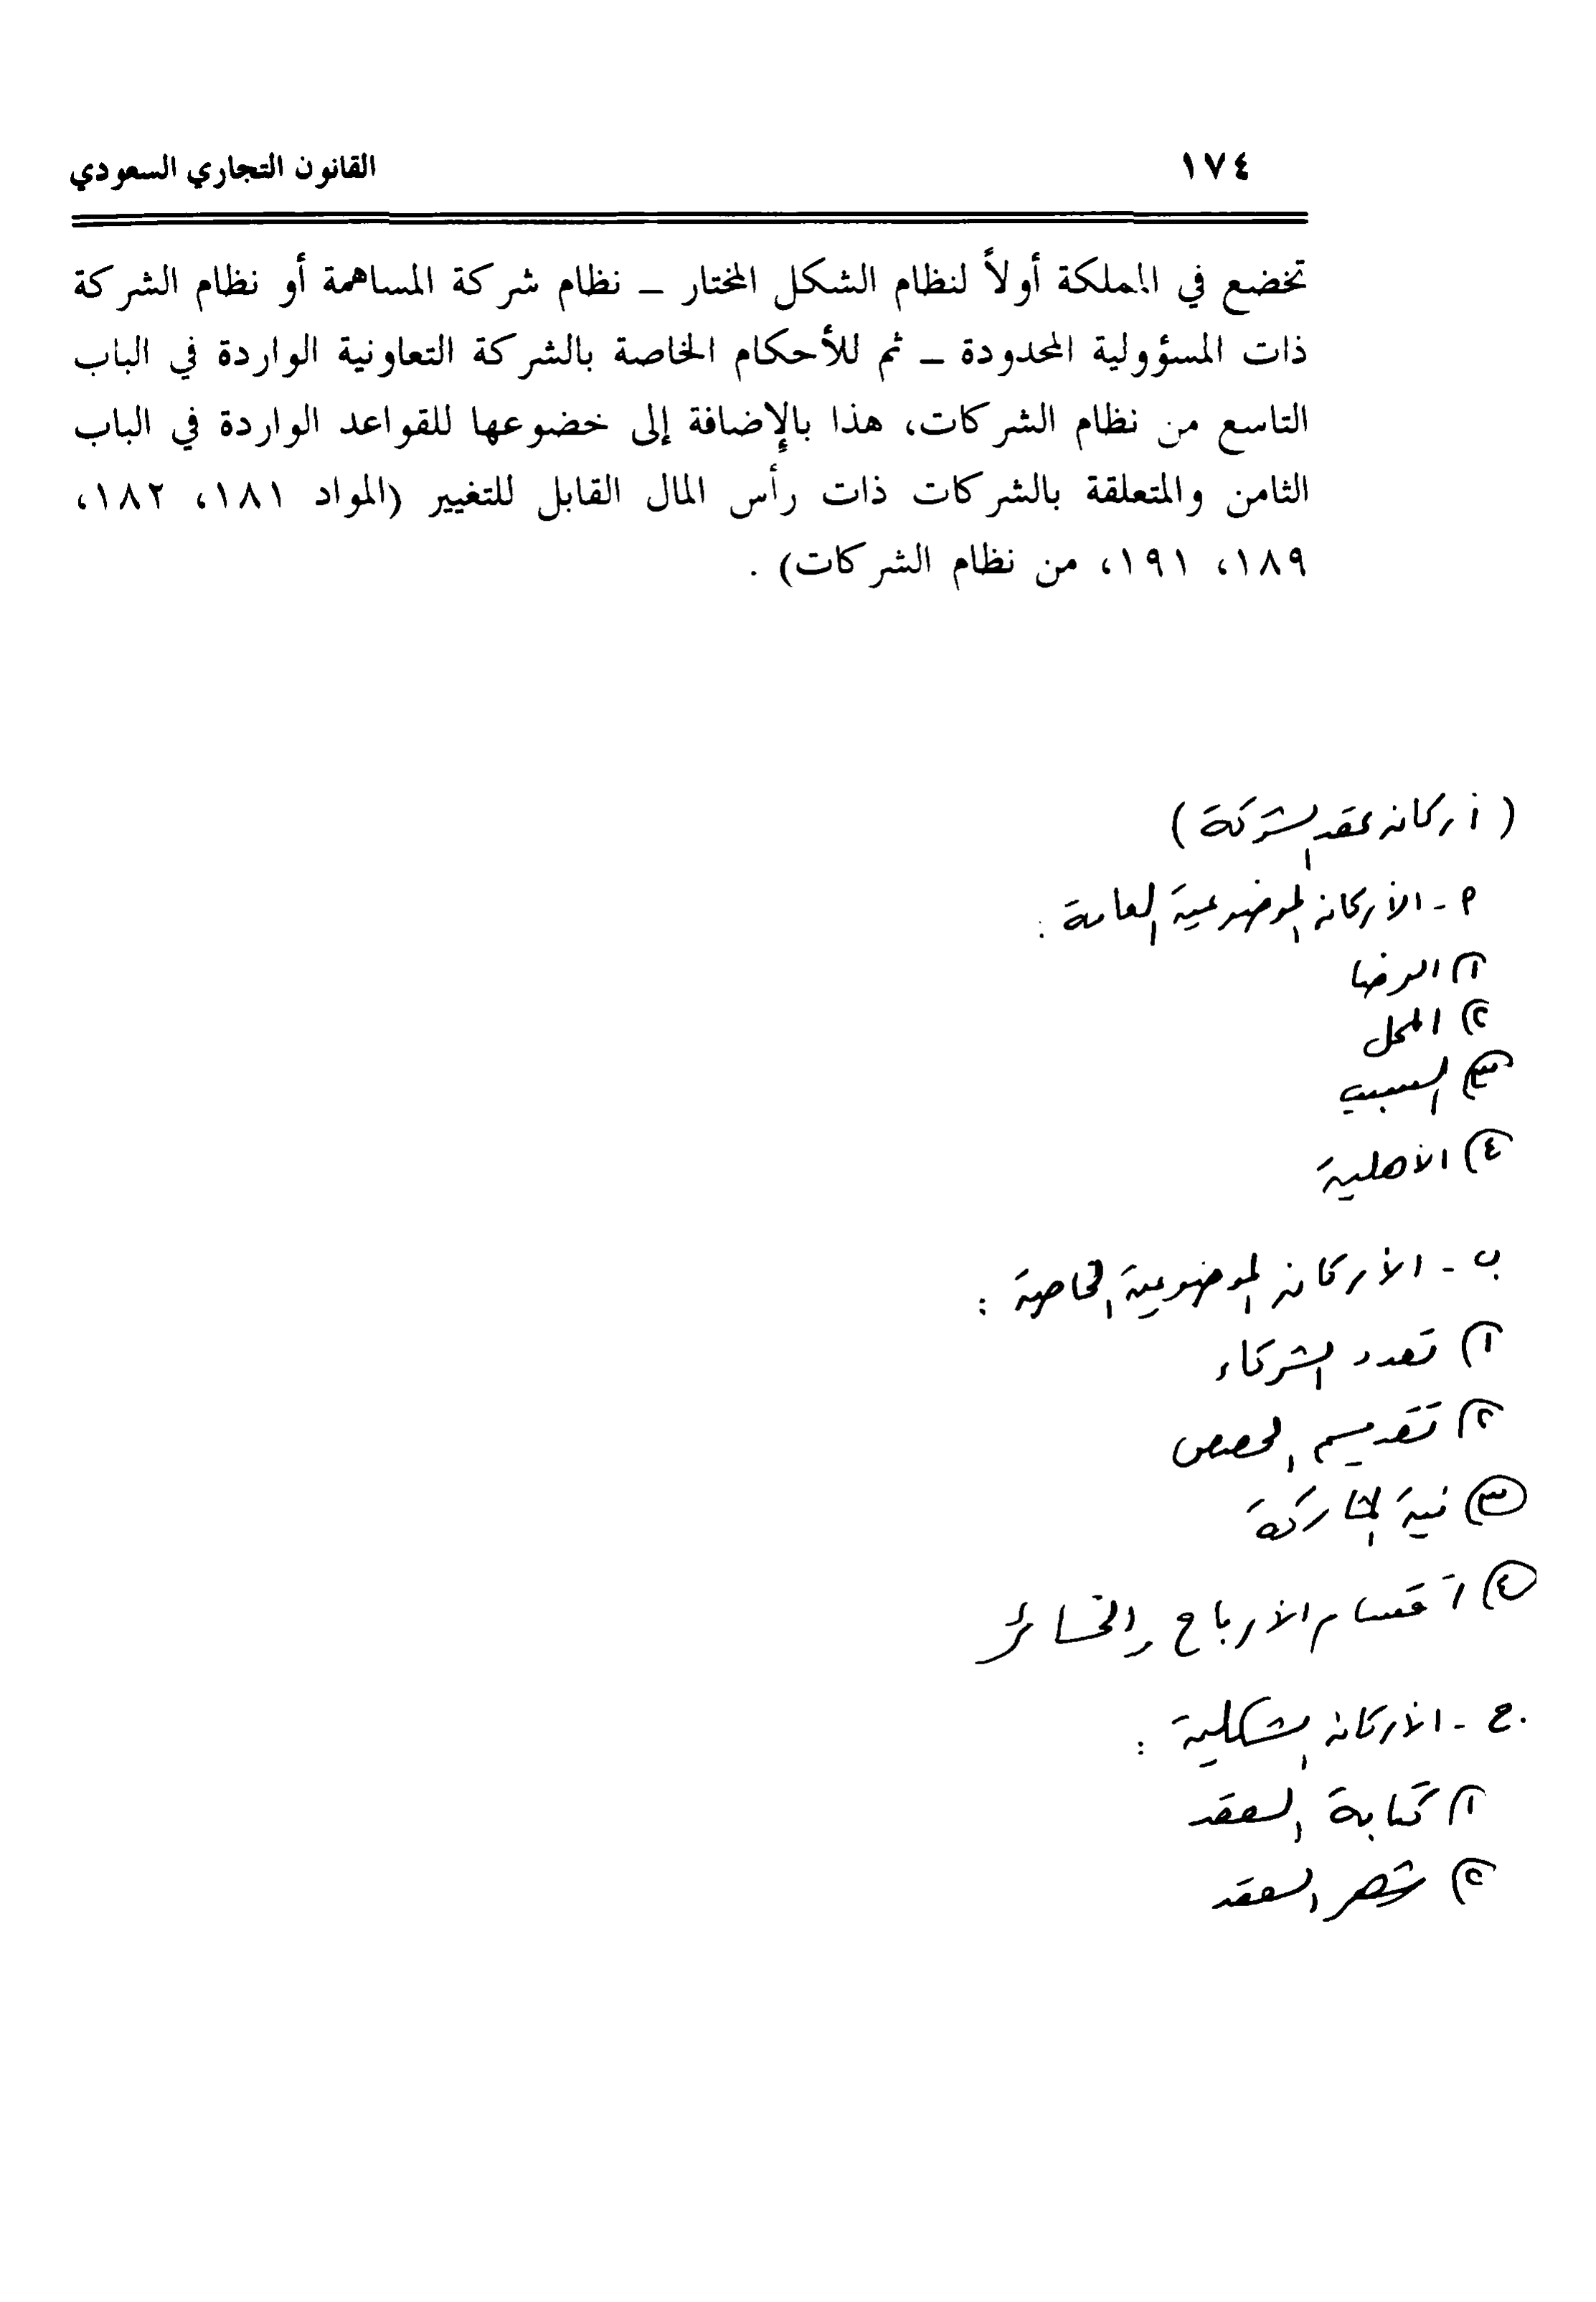 ١٧٤ القانون التجاري السعودي
تخضع في المملكة أولاً لنظام الشكل المختار ــ نظام شركة المساهمة أو نظام الشركة
ذات المسؤولية المحدودة ــ ثم للأحكام الخاصة بالشركة التعاونية الواردة في الباب
التاسع من نظام الشركات، هذا بالإضافة إلى خضوعها للقواعد الواردة في الباب
الثامن والمتعلقة بالشركات ذات رأس المال القابل للتغيير (المواد ١٨١، ١٨٢،
١٨٩، ١٩١، من نظام الشركات) .
( أركان عقد الشركة )
أ - الأركان الموضوعية العامة :
١) الرضا
٢) المحل
٣) السبب
٤) الأهلية
ب - الأركان الموضوعية الخاصة :
١) تعدد الشركاء
٢) تقديم الحصص
٣) نية المشاركة
٤) اقتسام الأرباح والخسائر
ج - الأركان الشكلية :
١) كتابة العقد
٢) شهر العقد